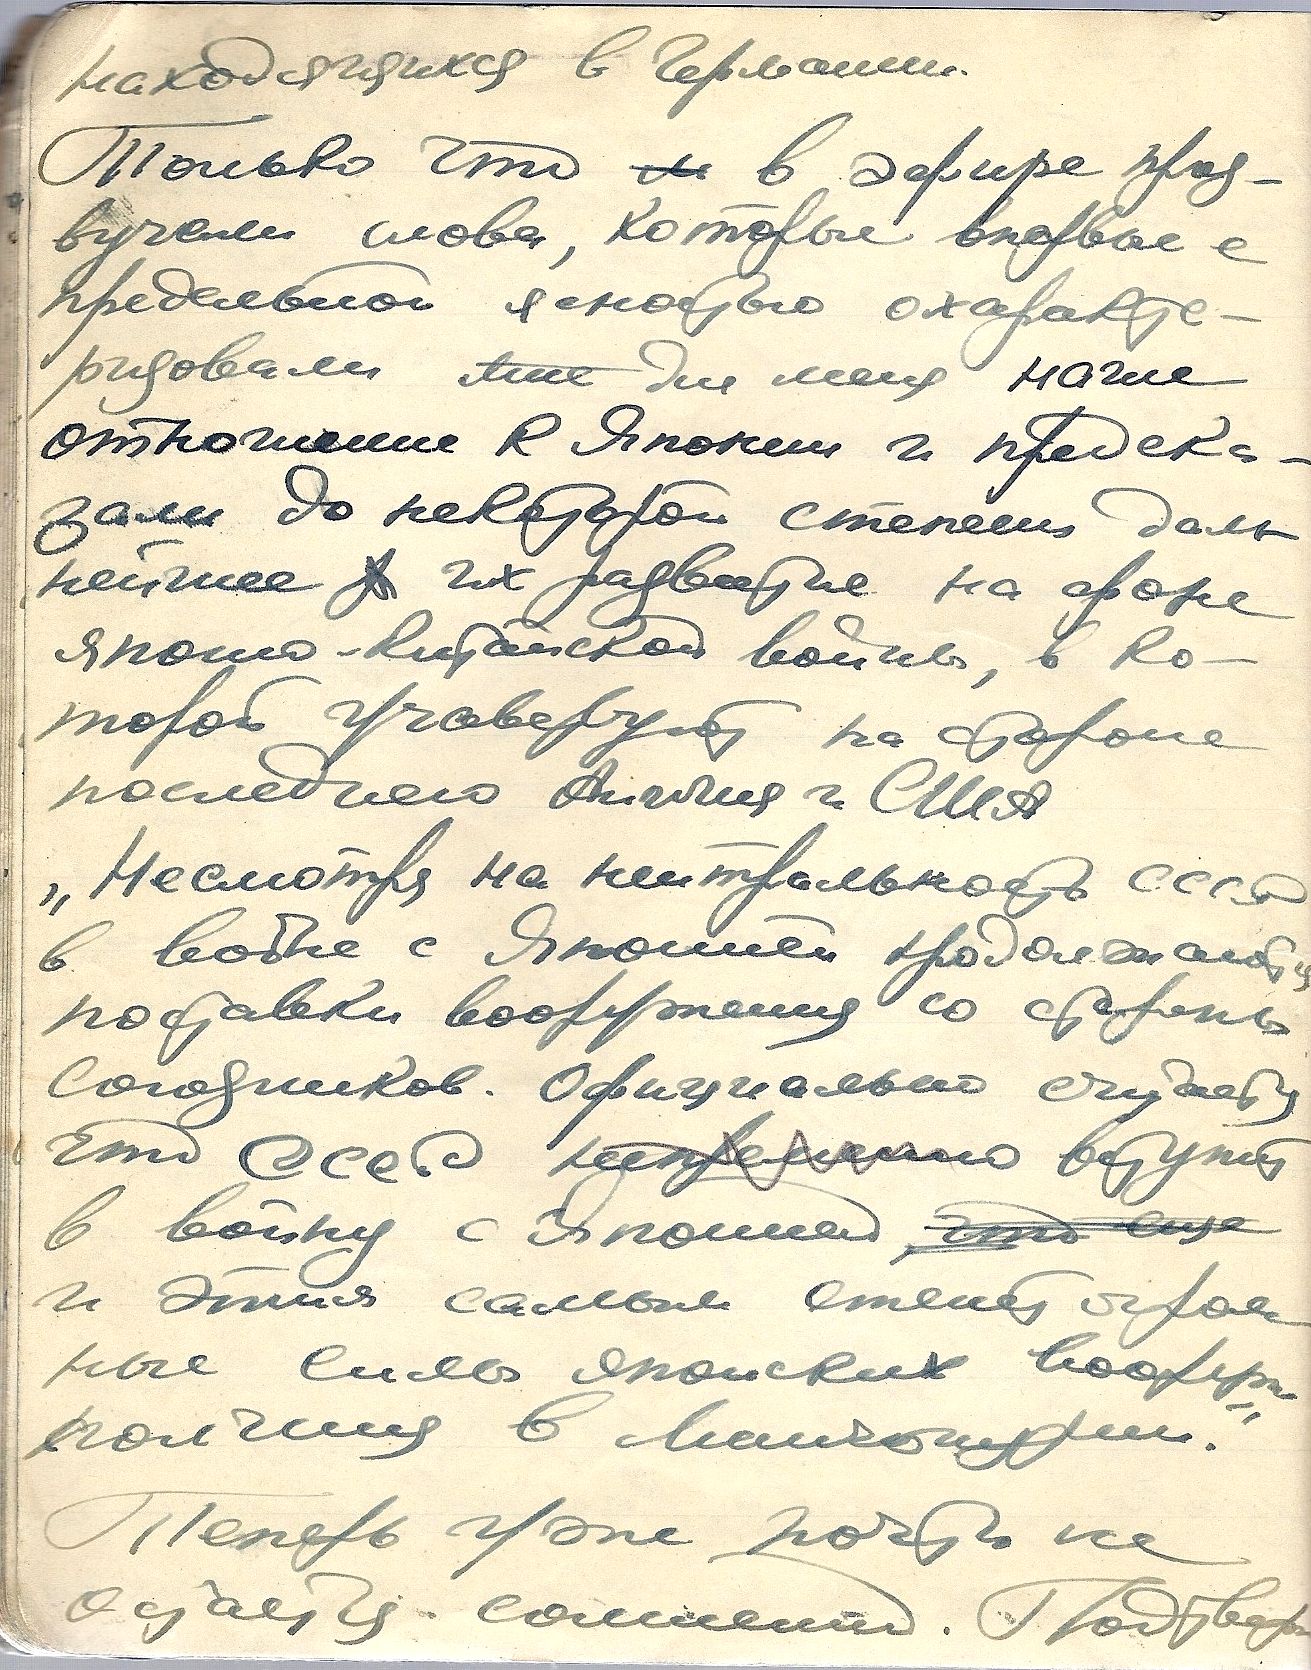 находящихся в Германии.
Только что в эфире проз-
вучали слова, которые впервые с
предельной ясностью охаракте-
ризовали для меня наше
отношение к Японии и предска-
зали до некоторой степени даль
нейшее их развитие на фоне
японо-китайской войны, в ко-
торой участвуют на стороне
последнего Англия и США
„Несмотря на нейтральность СССР
в войне с Японией продолжаются
поставки вооружения со стороны
союзников. Официально считается
что СССР непременно вступит
в войну с Японией, что еще
и этим самым сметет огром
ные силы японских вооруж.
полчищ в Манчжурии."
Теперь уже почти не
остается сомнений. Подтверж